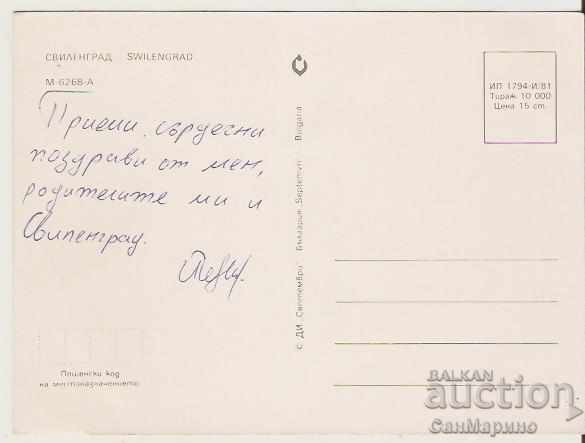 СВИЛЕНГРАД SWILENGRAD
М-6268-А
Приеми сърдечни
поздрави от мен,
родителите ми и
Свиленград.
ИП 1794-И/81
Тираж 10 000
Цена 15 ст.
© ДИ „Септември“ България Septemvri Bulgaria
Пощенски код
на местоназначението
BALKAN
auction
СанМарино